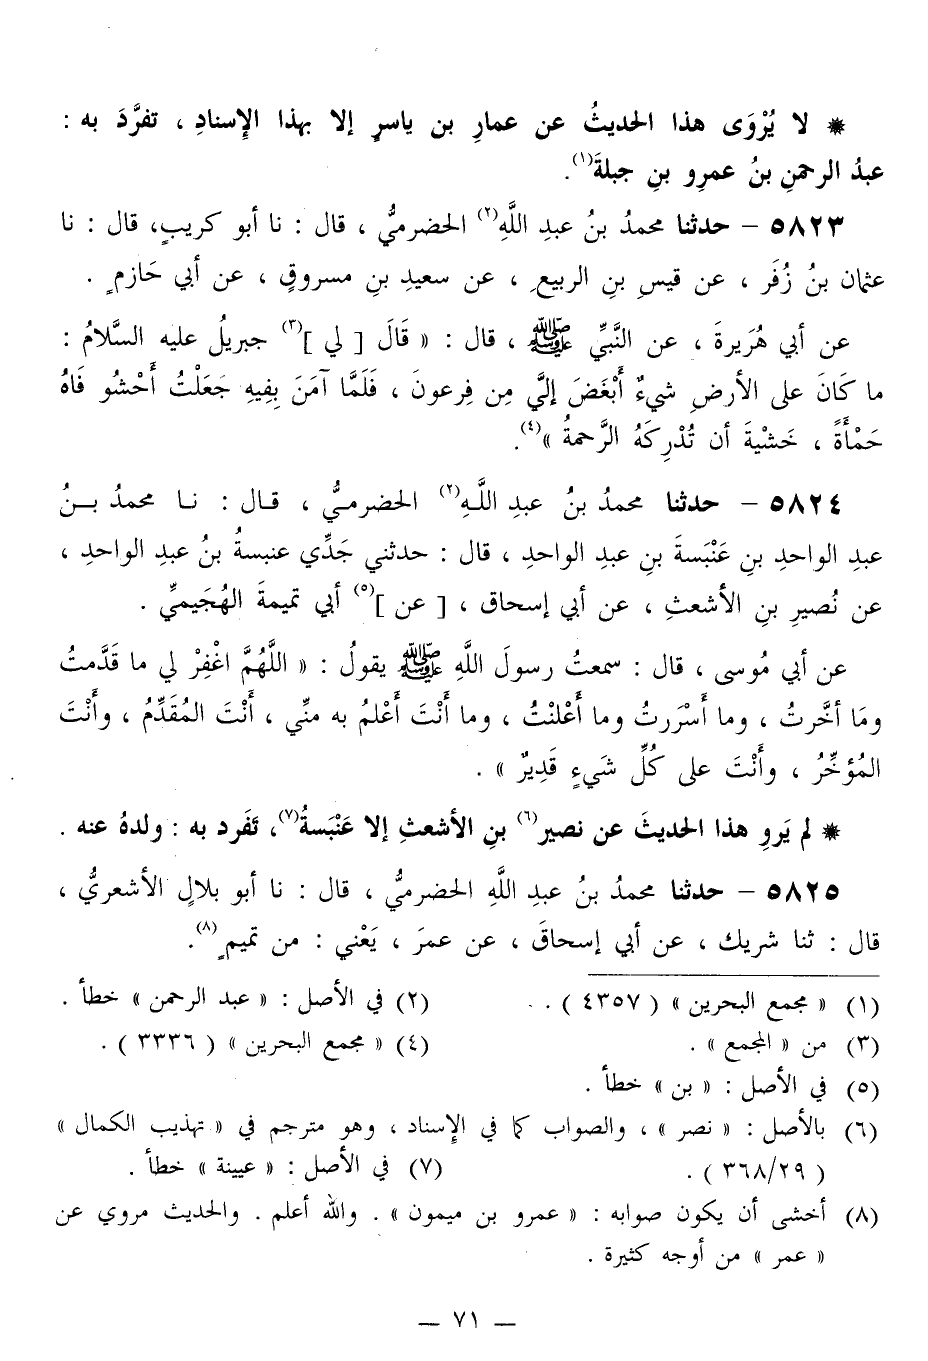 * لا يُرْوَى هذا الحديثُ عن عمارِ بن ياسرٍ إلا بهذا الإسنادِ ، تفرَّدَ به :
عبدُ الرحمنِ بنُ عمرِو بنِ جبلةَ(١).
٥٨٢٣ – حدثنا محمدُ بنُ عبدِ اللَّهِ(٢) الحضرميُّ ، قال : نا أبو كريبٍ، قال : نا
عثمان بنُ زُفَر ، عن قيسِ بنِ الربيعِ ، عن سعيدِ بنِ مسروقٍ ، عن أبي حَازمٍ .
عن أبي هُرَيرةَ ، عن النَّبيِّ ﷺ ، قال : « قَالَ [ لي ](٣) جبريلُ عليه السَّلامُ :
ما كَانَ على الأرضِ شيءٌ أَبْغَضَ إليَّ مِن فِرعونَ ، فَلَمَّا آمَنَ بِفِيهِ جَعَلْتُ أَحْشُو فَاهُ
حَمْأَةً ، خَشْيةَ أن تُدْرِكَهُ الرَّحمةُ »(٤).
٥٨٢٤ – حدثنا محمدُ بنُ عبدِ اللَّهِ(٢) الحضرميُّ ، قال : نا محمدُ بنُ
عبدِ الواحدِ بنِ عَنْبَسةَ بنِ عبدِ الواحدِ ، قال : حدثني جَدِّي عنبسةُ بنُ عبدِ الواحدِ ،
عن نُصيرِ بنِ الأشعثِ ، عن أبي إسحاق ، [ عن ](٥) أبي تميمةَ الهُجَيميِّ .
عن أبي مُوسى ، قال : سمعتُ رسولَ اللَّهِ ﷺ يقولُ : « اللَّهُمَّ اغْفِرْ لي ما قَدَّمتُ
ومَا أخَّرتُ ، وما أسْرَرتُ وما أَعْلنْتُ ، وما أنْتَ أَعْلمُ به منِّي ، أَنْتَ المُقَدِّمُ ، وأَنْتَ
المُؤخِّرُ ، وأَنْتَ على كُلِّ شَيءٍ قَدِيرٌ » .
* لم يَروِ هذا الحديثَ عن نصير(٦) بنِ الأشعثِ إلا عَنْبَسةُ(٧)، تَفَرد به : ولدهُ عنه .
٥٨٢٥ – حدثنا محمدُ بنُ عبدِ اللَّهِ الحضرميُّ ، قال : نا أبو بلالٍ الأشعريُّ ،
قال : ثنا شريك ، عن أبي إسحاقَ ، عن عمرَ ، يَعْني : من تميمٍ(٨).
(١) « مجمع البحرين » ( ٤٣٥٧ ) . (٢) في الأصل : « عبد الرحمن » خطأ .
(٣) من « المجمع » . (٤) « مجمع البحرين » ( ٣٣٣٦ ) .
(٥) في الأصل : « بن » خطأ .
(٦) بالأصل : « نصر » ، والصواب كما في الإسناد ، وهو مترجم في « تهذيب الكمال »
( ٣٦٨/٢٩ ) . (٧) في الأصل : « عيينة » خطأ .
(٨) أخشى أن يكون صوابه : « عمرو بن ميمون » . والله أعلم . والحديث مروي عن
« عمر » من أوجه كثيرة .
— ٧١ —